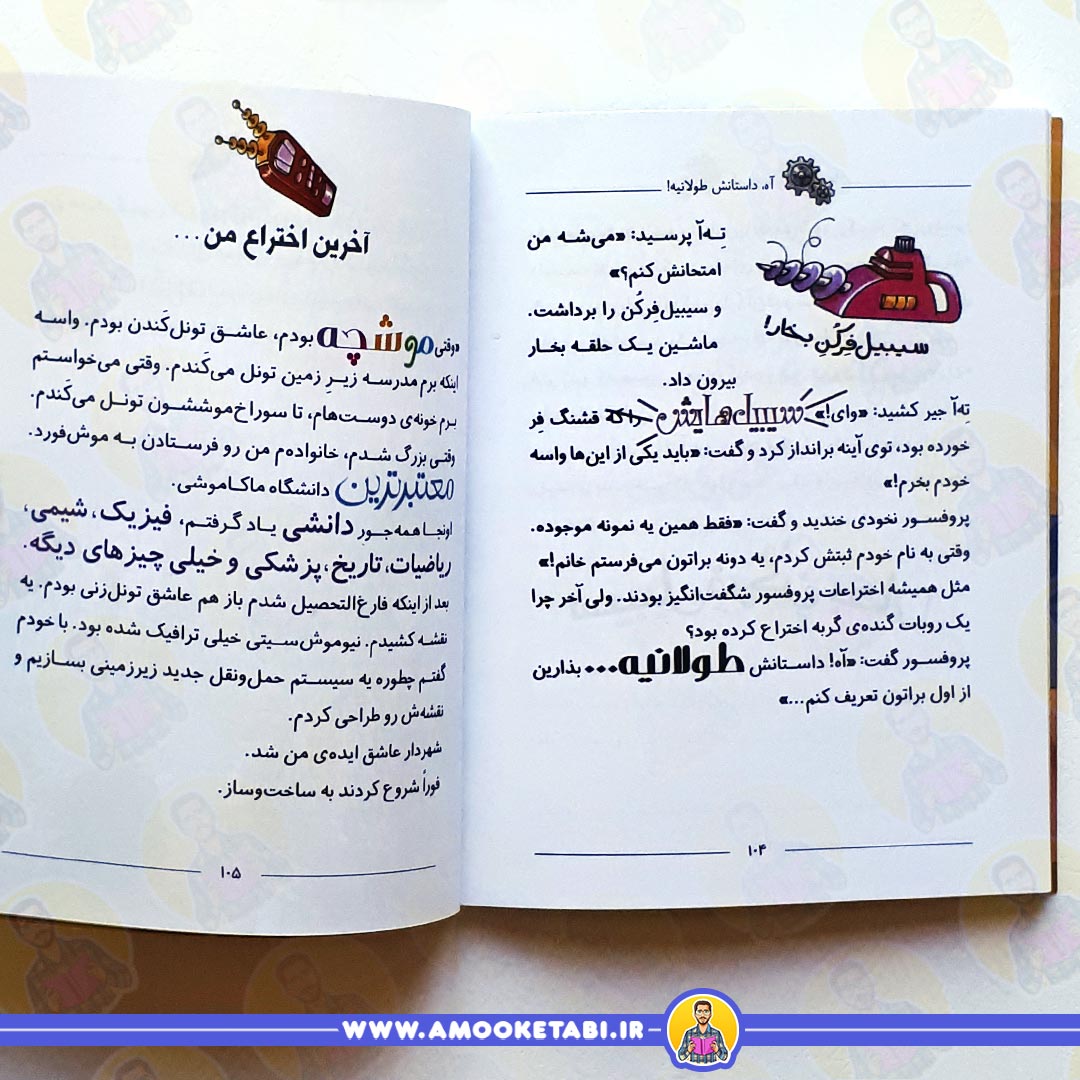 آه، داستانش طولانیه!
تِه‌آ پرسید: «می‌شه من
امتحانش کنم؟»
و سیبیل‌فِرکُن را برداشت.
ماشین یک حلقه بخار
بیرون داد.
سیبیل‌فِرکُن بخار!
تِه‌آ جیر کشید: «وای!» سیبیل‌هایش را که قشنگ فِر
خورده بود، توی آینه برانداز کرد و گفت: «باید یکی از این‌ها واسه
خودم بخرم!»
پروفسور نخودی خندید و گفت: «فقط همین یه نمونه موجوده.
وقتی به نام خودم ثبتش کردم، یه دونه براتون می‌فرستم خانم!»
مثل همیشه اختراعات پروفسور شگفت‌انگیز بودند. ولی آخر چرا
یک روبات گنده‌ی گربه اختراع کرده بود؟
پروفسور گفت: «آه! داستانش طولانیه... بذارین
از اول براتون تعریف کنم...»
۱۰۴
آخرین اختراع من...
«وقتی موشچه بودم، عاشق تونل‌کَندن بودم. واسه
اینکه برم مدرسه زیرِ زمین تونل می‌کَندم. وقتی می‌خواستم
برم خونه‌ی دوست‌هام، تا سوراخ‌موششون تونل می‌کَندم.
وقتی بزرگ شدم، خانواده‌م من رو فرستادن به موش‌فورد.
معتبرترین دانشگاه ماکاموشی.
اونجا همه‌جور دانشی یاد گرفتم، فیزیک، شیمی،
ریاضیات، تاریخ، پزشکی و خیلی چیزهای دیگه.
بعد از اینکه فارغ‌التحصیل شدم باز هم عاشق تونل‌زنی بودم. یه
نقشه کشیدم. نیوموش‌سیتی خیلی ترافیک شده بود. با خودم
گفتم چطوره یه سیستم حمل‌ونقل جدید زیرزمینی بسازیم و
نقشه‌ش رو طراحی کردم.
شهردار عاشق ایده‌ی من شد.
فوراً شروع کردند به ساخت‌وساز.
۱۰۵
WWW.AMOOKETABI.IR